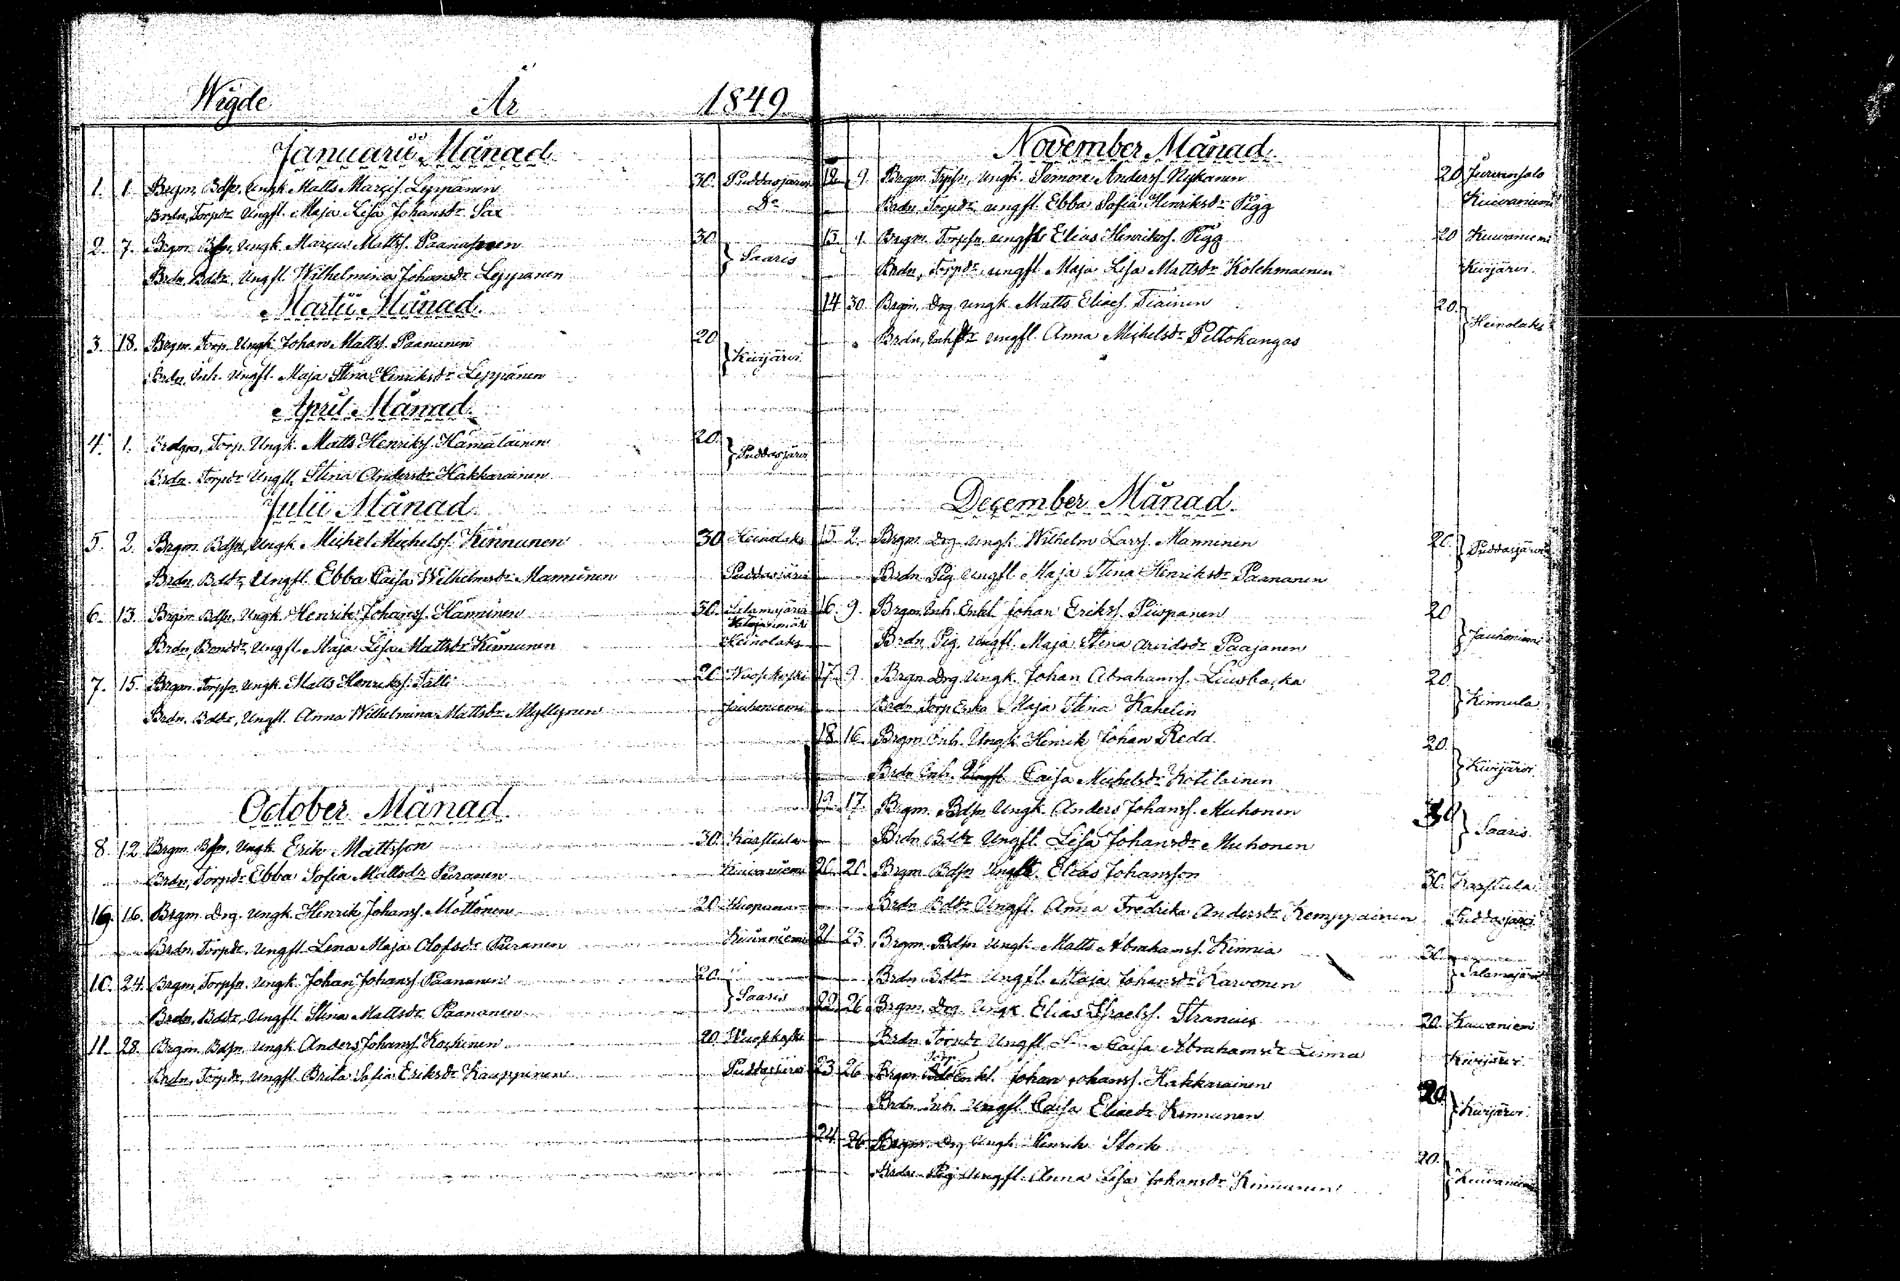 Wigde År 1849
Januarii Månad
1. 1. Brgm. Bdsn, Ungk Matts Marcis. Leppänen 30. Puddasjärvi
Brdn, Torpdr Ungfl. Maja Lisa Johansdr Sax Do
2. 7. Brgm. Bdsn, Ungk. Marcus Mattss. Paananen 30 } Saaris
Brdn, Bddr, Ungfl. Wilhelmina Johansdr Leppänen
Martii Månad.
3. 18. Brgm. Torp. Ungk. Johan Mattss. Paananen 20 } Kivijärvi
Brdn. Inh. Ungfl. Maja Stina Henriksdr Leppänen
April Månad.
4. 1. Brdgm, Torp. Ungk. Matts Henrikss. Hämäläinen 20. } Puddasjärvi
Brdn. Torpdr Ungfl. Stina Andersdr Hakkarainen
Julii Månad
5. 2. Brgm. Bdsn, Ungk Michel Michelss. Kinnunen 30 Heinolaks
Brdn. Bddr, Ungfl. Ebba Caisa Wilhelmsdr Manninen Puddasjärvi
6. 13. Brgm. Bdsn. Ungk. Henrik Johanss. Hänninen 30. Salamajärvi
Brdn, Bonddr, Ungfl. Maja Lisa Mattsdr Kinnunen Heinolaks
7. 15. Brgm. Torpsn, Ungk. Matts Henrikss. Tälli 20 Wuoskoski
Brdn. Bddr, Ungfl. Anna Wilhelmina Mattsdr Myllynen Jauhoniemi
October Månad.
8. 12 Brgm. Bdsn, Ungk. Erik Mattsson 30. Karstula
Brdn, Torpdr Ebba Sofia Mattsdr Puranen Kuivaniemi
9 16. Brgm. Drg. Ungk. Henrik Johanss. Möttönen 20
Brdn. Torpdr, Ungfl. Lena Maja Olofsdr Puranen Kuivaniemi
10. 24. Brgm, Torpsn. Ungk. Johan Johanss. Paananen 20 } Saaris
Brdn, Bddr, Ungfl. Stina Mattsdr Paananen
11. 28. Brgm. Bdsn. Ungk Anders Johanss. Koskinen 20. Wuoskoski
Brdn, Torpdr, Ungfl. Brita Sofia Eriksdr Kauppinen Puddasjärvi
November Månad.
12 9. Brgm. Torpsn, Ungk. Simon Anderss. Nykänen 20 Jurvansalo
Brdn. Torpdr Ungfl. Ebba Sofia Henriksdr Pigg Kuivaniemi
13 9. Brgm. Torpsn. Ungk Elias Henrikss. Pigg 20 Kuivaniemi
Brdn, Torpdr, Ungfl Maja Lisa Mattsdr Kolehmainen Kivijärvi.
14 30. Brgm. Drg Ungk. Matts Eliaes. Tiainen 20. } Heinolaks
Brdn, Inhdr Ungfl. Anna Michelsdr Peltokangas
December Månad.
15. 2. Brgm. Drg Ungk. Wilhelm Larss. Manninen 20. } Puddasjärvi
Brdn. Pig. Ungfl. Maja Stina Henriksdr Paananen
16. 9. Brgm. Inh. Enkl. Johan Erikss. Piispanen 20 } Jauhoniemi
Brdn. Pig. Ungfl. Maja Stina Arvidsdr Paajanen
17. 9. Brgm. Drg Ungk. Johan Abrahamss. Liusbacka 20. } Kinnula
Brdn, Torp Enka Maja Stina Kahelin
18. 16. Brgm. Inh. Ungk. Henrik Johan Redd 20. } Kivijärvi
Brdn Inh. Ungfl Caisa Michelsdr Kotilainen
19. 17. Brgm. Bdsn Ungk. Anders Johanss. Muhonen 30 } Saaris
Brdn Bddr Ungfl. Lisa Johansdr Muhonen
20. 20. Brgm Bdsn Ungk. Elias Johansson 30. Karstula
Brdn Bddr Ungfl. Anna Fredrika Andersdr Kemppainen Puddasjärvi
21. 23 Brgm. Bdsn Ungk. Matts Abrahamss. Kinnia 30. } Salamajärvi
Brdn Bddr Ungfl. Maja Johansdr Karvonen
22. 26 Brgm. Drg. Ungk Elias Israelss. Stranius 20. Kuivaniemi
Brdn Torpdr Ungfl. Caisa Abrahamsdr Linna Kivijärvi
23 26 Brgm. Torp Enkl. Johan Johanss. Hakkarainen 20 } Kivijärvi.
Brdn Inh. Ungfl Caisa Eliaedr Kinnunen
24. 26 Brgm. Drg Ungk. Henrik Stork 20. } Kuivaniemi
Brdn Pig Ungfl. Anna Lisa Johansdr Kinnunen